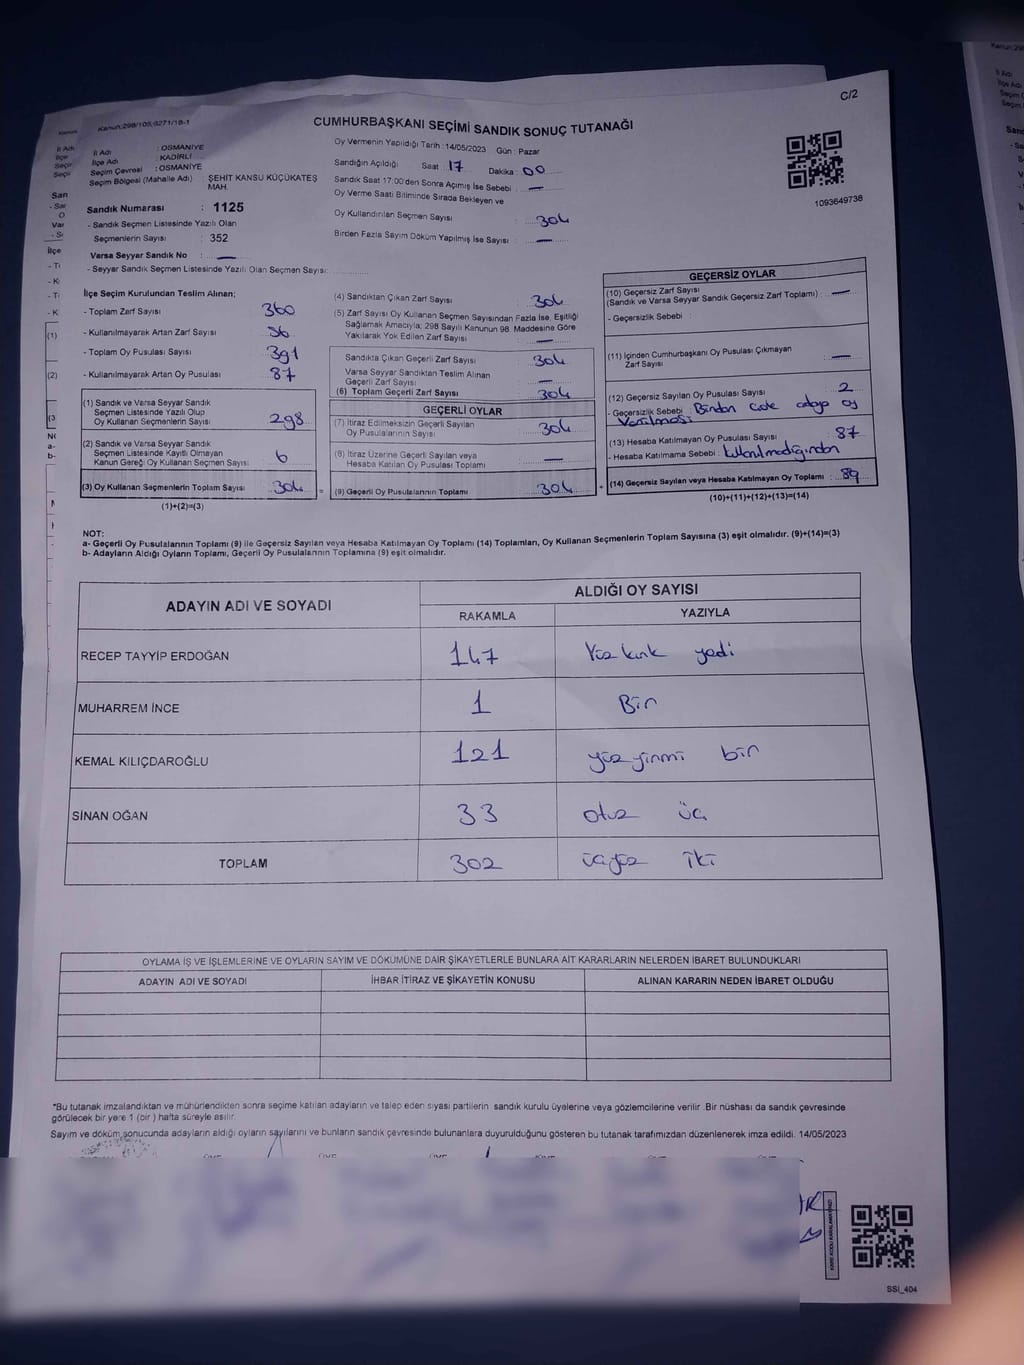 C/2
Kanun:298/105,6271/18-1
CUMHURBAŞKANI SEÇİMİ SANDIK SONUÇ TUTANAĞI
İl Adı : OSMANİYE
İlçe Adı : KADİRLİ
Seçim Çevresi : OSMANİYE
Seçim Bölgesi (Mahalle Adı) ŞEHİT KANSU KÜÇÜKATEŞ
MAH.
Sandık Numarası : 1125
- Sandık Seçmen Listesinde Yazılı Olan
Seçmenlerin Sayısı : 352
Varsa Seyyar Sandık No : —
- Seyyar Sandık Seçmen Listesinde Yazılı Olan Seçmen Sayısı:
Oy Vermenin Yapıldığı Tarih :14/05/2023 Gün : Pazar
Sandığın Açıldığı Saat 17 Dakika 00
Sandık Saat 17:00'den Sonra Açımış İse Sebebi : —
Oy Verme Saati Bitiminde Sırada Bekleyen ve
Oy Kullandırılan Seçmen Sayısı : 304
Birden Fazla Sayım Döküm Yapılmış İse Sayısı : —
1093649738
İlçe Seçim Kurulundan Teslim Alınan:
- Toplam Zarf Sayısı : 360
- Kullanılmayarak Artan Zarf Sayısı : 56
- Toplam Oy Pusulası Sayısı : 391
- Kullanılmayarak Artan Oy Pusulası : 87
(1) Sandık ve Varsa Seyyar Sandık
Seçmen Listesinde Yazılı Olup
Oy Kullanan Seçmenlerin Sayısı : 298
(2) Sandık ve Varsa Seyyar Sandık
Seçmen Listesinde Kayıtlı Olmayan
Kanun Gereği Oy Kullanan Seçmen Sayısı : 6
(3) Oy Kullanan Seçmenlerin Toplam Sayısı : 304
(1)+(2)=(3)
(4) Sandıktan Çıkan Zarf Sayısı : 304
(5) Zarf Sayısı Oy Kullanan Seçmen Sayısından Fazla İse, Eşitliği
Sağlamak Amacıyla; 298 Sayılı Kanunun 98. Maddesine Göre
Yakılarak Yok Edilen Zarf Sayısı : —
Sandıkta Çıkan Geçerli Zarf Sayısı : 304
Varsa Seyyar Sandıktan Teslim Alınan
Geçerli Zarf Sayısı : —
(6) Toplam Geçerli Zarf Sayısı : 304
GEÇERLİ OYLAR
(7) İtiraz Edilmeksizin Geçerli Sayılan
Oy Pusulalarının Sayısı : 304
(8) İtiraz Üzerine Geçerli Sayılan veya
Hesaba Katılan Oy Pusulası Toplamı : —
= (9) Geçerli Oy Pusulalarının Toplamı : 304
GEÇERSİZ OYLAR
(10) Geçersiz Zarf Sayısı
(Sandık ve Varsa Seyyar Sandık Geçersiz Zarf Toplamı) : —
- Geçersizlik Sebebi :
(11) İçinden Cumhurbaşkanı Oy Pusulası Çıkmayan
Zarf Sayısı : —
(12) Geçersiz Sayılan Oy Pusulası Sayısı : 2
- Geçersizlik Sebebi : Birden çok adaya oy
Verilmesi
(13) Hesaba Katılmayan Oy Pusulası Sayısı : 87
- Hesaba Katılmama Sebebi : kullanılmadığından
+ (14) Geçersiz Sayılan veya Hesaba Katılmayan Oy Toplamı : 89
(10)+(11)+(12)+(13)=(14)
NOT:
a- Geçerli Oy Pusulalarının Toplamı (9) ile Geçersiz Sayılan veya Hesaba Katılmayan Oy Toplamı (14) Toplamları, Oy Kullanan Seçmenlerin Toplam Sayısına (3) eşit olmalıdır. (9)+(14)=(3)
b- Adayların Aldığı Oyların Toplamı, Geçerli Oy Pusulalarının Toplamına (9) eşit olmalıdır.
ADAYIN ADI VE SOYADI ALDIĞI OY SAYISI
RAKAMLA YAZIYLA
RECEP TAYYİP ERDOĞAN 147 Yüz kırk yedi
MUHARREM İNCE 1 Bir
KEMAL KILIÇDAROĞLU 121 yüz yirmi bir
SİNAN OĞAN 33 otuz üç
TOPLAM 302 üçyüz iki
OYLAMA İŞ VE İŞLEMLERİNE VE OYLARIN SAYIM VE DÖKÜMÜNE DAİR ŞİKAYETLERLE BUNLARA AİT KARARLARIN NELERDEN İBARET BULUNDUKLARI
ADAYIN ADI VE SOYADI İHBAR İTİRAZ VE ŞİKAYETİN KONUSU ALINAN KARARIN NEDEN İBARET OLDUĞU
*Bu tutanak imzalandıktan ve mühürlendikten sonra seçime katılan adayların ve talep eden siyasi partilerin sandık kurulu üyelerine veya gözlemcilerine verilir. Bir nüshası da sandık çevresinde
görülecek bir yere 1 (bir ) hafta süreyle asılır.
Sayım ve döküm sonucunda adayların aldığı oyların sayılarını ve bunların sandık çevresinde bulunanlara duyurulduğunu gösteren bu tutanak tarafımızdan düzenlenerek imza edildi. 14/05/2023
SSI_404